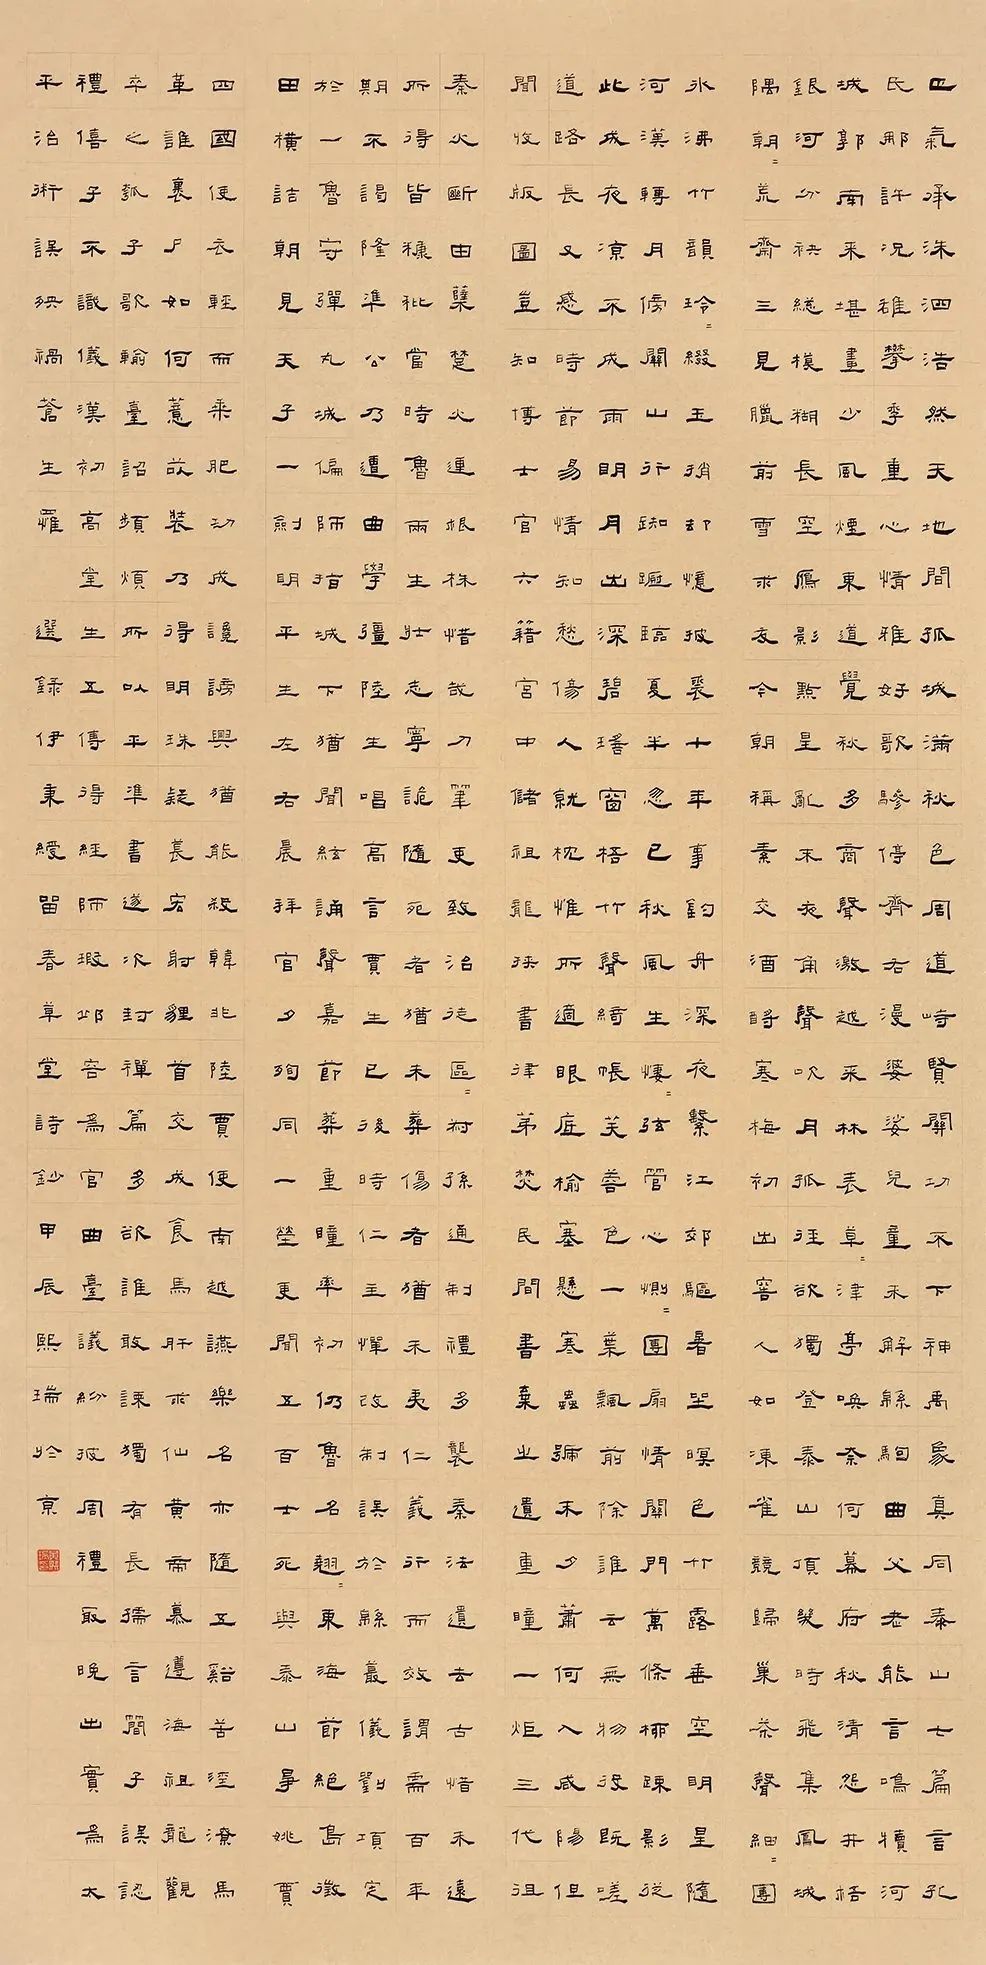 氣承洙泗浩然天地間孤城滿秋色周道峙賢關功不下神禹象真同泰山七篇言孔
氏那許況稚攀季重心情雅好歌驂停齊右漫婆娑兒童未解緜駒曲父老能言鳴犢河
城郭南來堪畫少風煙東道覺秋多商聲激越來林表草〻津亭喚奈何幕府秋清怨井梧
銀河分袂總模糊長空鴈影點星亂末夜角聲吹月孤往欲獨登泰山頂幾時飛集鳳城
隅朝〻荒齋三見臘前雪求友今朝稱素交酒醉寒梅初出窖人如凍雀競歸巢茶聲細〻團
冰沸竹韻玲〻綴玉梢却憶披裘十年事釣舟深夜繫江郊驅暑坐暝色竹露垂空明星隨
河漢轉月傍關山行踟躕臨夏半忽已秋風生悽〻弦管心惻〻團扇情關門萬條柳疎影從
此成夜涼不成雨明月出深碧瑤窗梧竹聲綺帳芙蓉色一葉飄前除誰云無物役既嗟
道路長又感時節易情知愁傷人就枕惟所適眼底榆塞懸寒蟲號未夕蕭何入咸陽但
聞收版圖豈知博士官六籍宮中儲祖龍挾書律苐焚民間書棄之遺重瞳一炬三代徂
秦火斷由蘖楚火連根株惜哉刀筆吏致治徒區〻叔孫通制禮多襲秦法遺去古惜未遠
所得皆穅秕當時魯兩生壯志寧詭隨死者猶未葬傷者猶未夷仁義行而效謂需百年
期不謁隆準公乃遭曲學彊陸生唱高言賈生已後時仁主憚改制誤於緜蕞儀劉項定
於一魯守彈丸城偏師指城下猶聞絃誦聲嘉節葬重瞳率初仍魯名翹〻東海節絕島徵
田橫詰朝見天子一劍明平生左右晨拜官夕殉同一塋更聞五百士死與泰山爭姚賈
四國使衣輕而乘肥功成讒謗興猶能殺韓非陸賈使南越燕樂名亦隨五谿苦溼潦馬
革誰裹尸如何薏苡裝乃得明珠疑萇宏射貍首交成食馬肝求仙黃帝慕遵海祖龍觀
卒之瓠子歌輪臺詔頻煩所以平準書遂次封禪篇多欲誰敢諫獨有長孺言簡子誤認
禮僖子不識儀漢初高堂生五傳得經師瑕邱容爲官曲臺議紛披周禮最晚出實爲大
平治術誤殃禍蒼生罹 選錄伊秉綬留春草堂詩鈔甲辰熙瑞於京